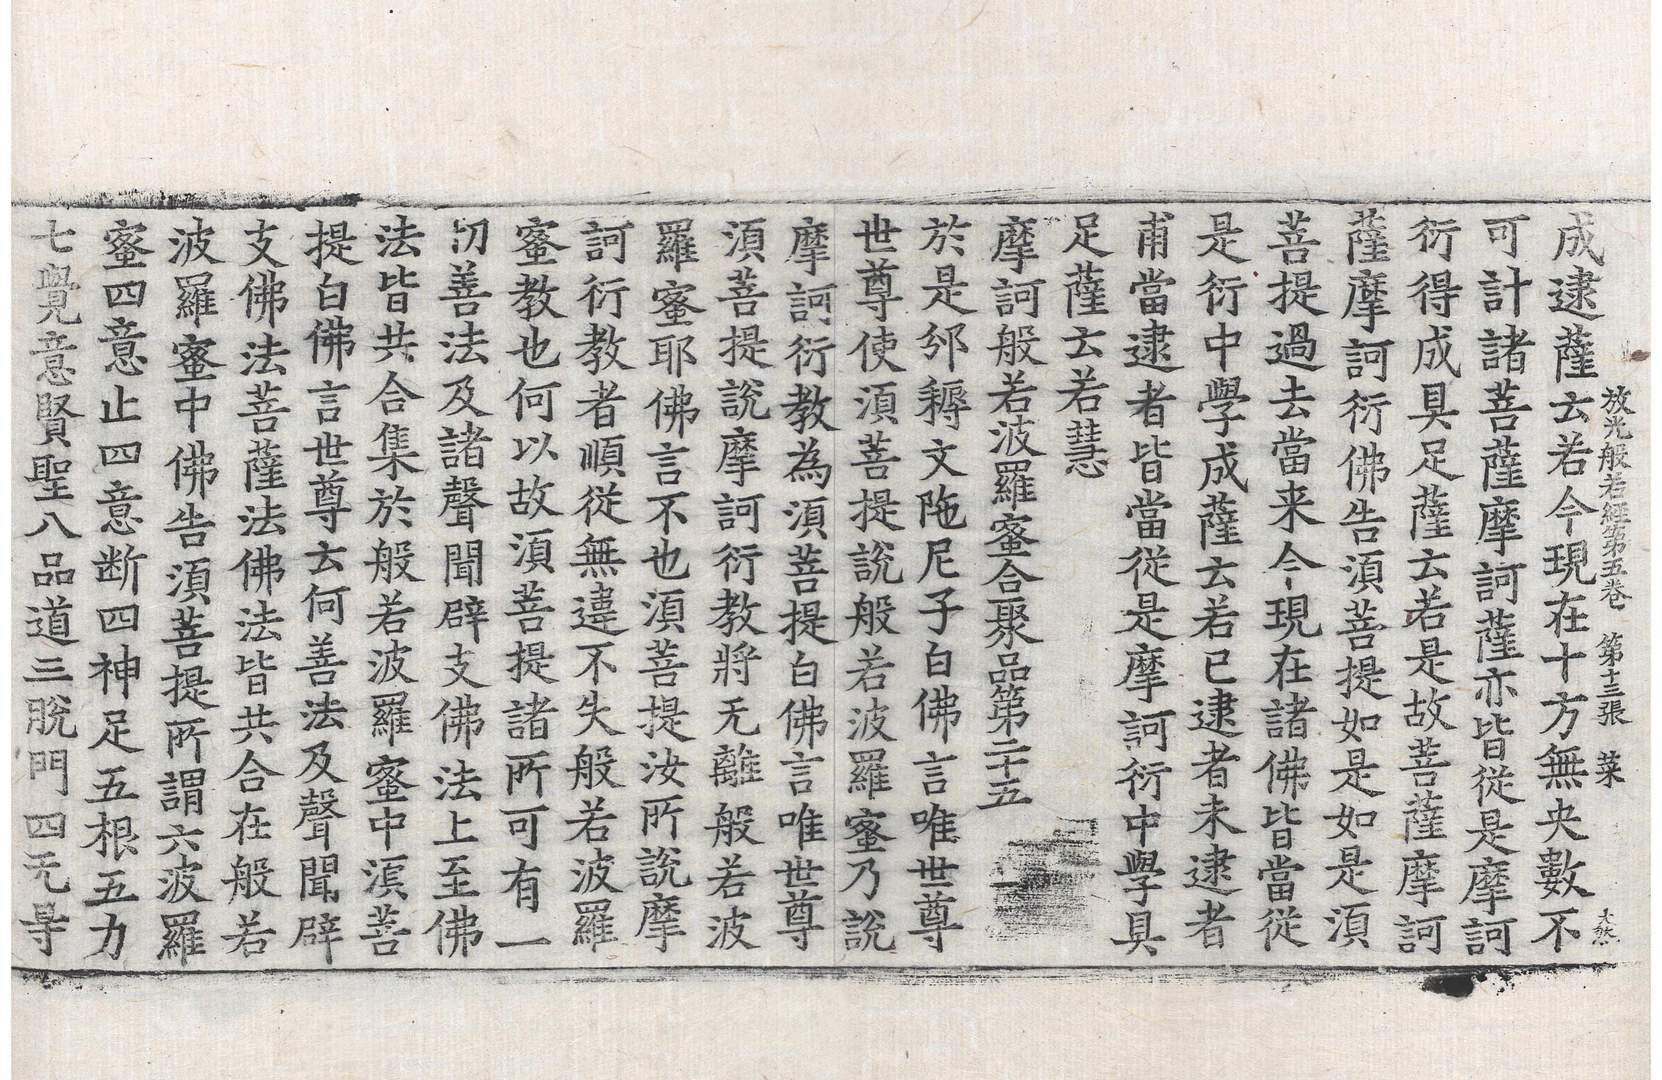 放光般若經第五卷 第十三張 菜 大然
成逮薩云若今現在十方無央數不
可計諸菩薩摩訶薩亦皆從是摩訶
衍得成具足薩云若是故菩薩摩訶
薩摩訶衍佛告湏菩提如是如是湏
菩提過去當来今現在諸佛皆當從
是衍中學成薩云若已逮者未逮者
甫當逮者皆當從是摩訶衍中學具
足薩云若慧
摩訶般若波羅蜜合聚品第二十五
於是邠耨文陁尼子白佛言唯世尊
世尊使湏菩提說般若波羅蜜乃說
摩訶衍教為湏菩提白佛言唯世尊
湏菩提說摩訶衍教將无離般若波
羅蜜耶佛言不也湏菩提汝所說摩
訶衍教者順從無違不失般若波羅
蜜教也何以故湏菩提諸所可有一
切善法及諸聲聞辟支佛法上至佛
法皆共合集於般若波羅蜜中湏菩
提白佛言世尊云何善法及聲聞辟
支佛法菩薩法佛法皆共合在般若
波羅蜜中佛告湏菩提所謂六波羅
蜜四意止四意断四神足五根五力
七覺意賢聖八品道三脫門四无㝵